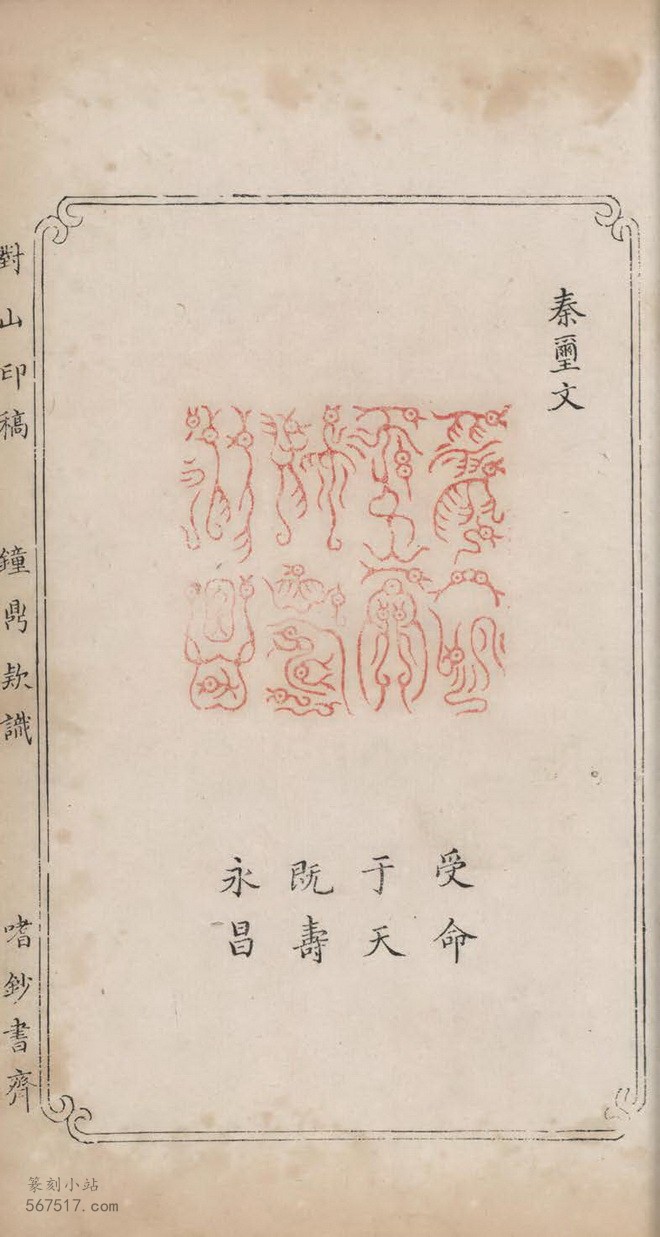 秦璽文
受命
于天
既壽
永昌
對山印稿 鐘鼎款識 嗜鈔書齋
篆刻小站
567517.com